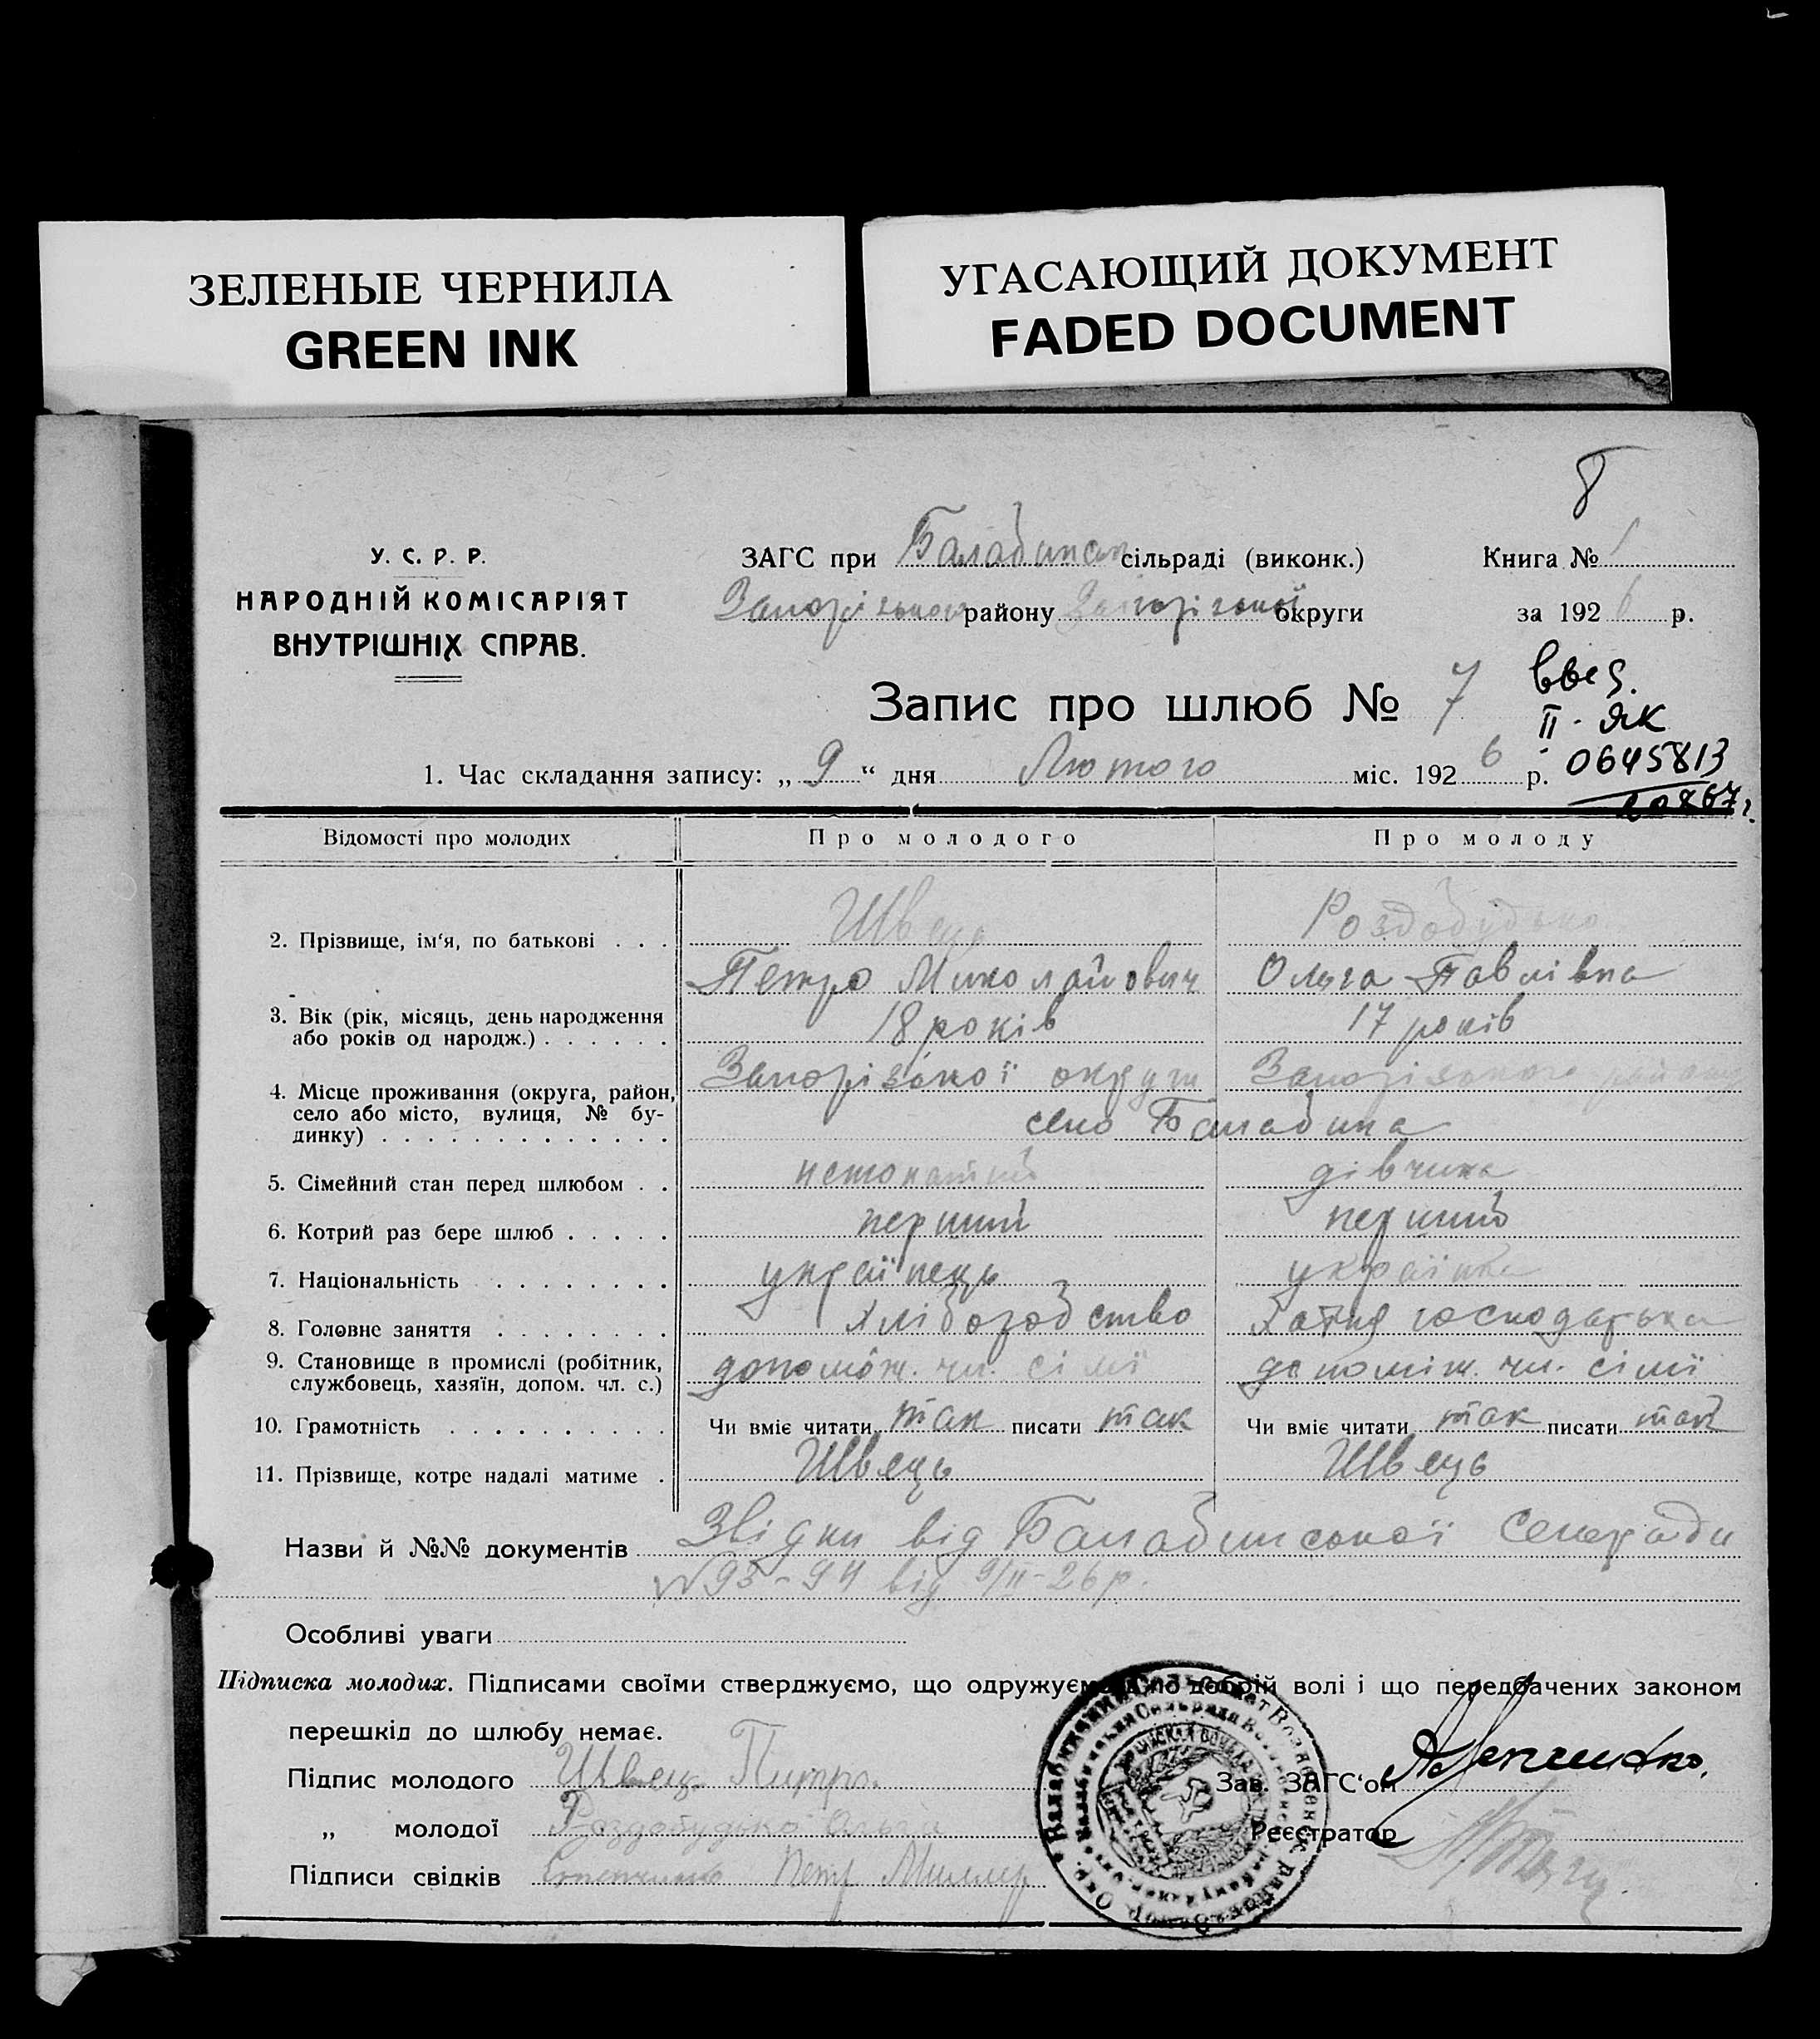 ЗЕЛЕНЫЕ ЧЕРНИЛА
GREEN INK
УГАСАЮЩИЙ ДОКУМЕНТ
FADED DOCUMENT
8
У. С. Р. Р.
НАРОДНІЙ КОМІСАРІЯТ
ВНУТРІШНІХ СПРАВ.
ЗАГС при Балабинск сільраді (виконк.)
Запорізького району Запорізької округи
Книга № 1
за 1926 р.
Запис про шлюб № 7
II - ЯК
0645813
1. Час складання запису: „ 9 “ дня Лютого міс. 1926 р.
Відомості про молодих Про молодого Про молоду
2. Прізвище, ім‘я, по батькові . . . Швець Роздобудько
Петро Миколайович Ольга Павлівна
3. Вік (рік, місяць, день народження
або років од народж.) . . . . . . 18 років 17 років
4. Місце проживання (округа, район, Запорізької округи Запорізького району
село або місто, вулиця, № бу-
динку) . . . . . . . . . . . . . село Балабина
5. Сімейний стан перед шлюбом . . нежонатий дівчина
6. Котрий раз бере шлюб . . . . . перший перший
7. Національність . . . . . . . . українець українка
8. Головне заняття . . . . . . . . хліборобство хатня господарька
9. Становище в промислі (робітник,
службовець, хазяїн, допом. чл. с.) допомож. чл. сімї допоміж. чл. сімї
10. Грамотність . . . . . . . . . . Чи вміє читати так писати так Чи вміє читати так писати так
11. Прізвище, котре надалі матиме . Швець Швець
Назви й №№ документів Звідки від Балабинської Сельради
№ 93-94 від 9/II-26 р.
Особливі уваги
Підписка молодих. Підписами своїми стверджуємо, що одружуємось по добрій волі і що передбачених законом
перешкід до шлюбу немає.
Підпис молодого Швец Питро.
„ молодої Роздобудько Ольга
Підписи свідків Петр Миллер
Зав. ЗАГС‘ом
Реєстратор